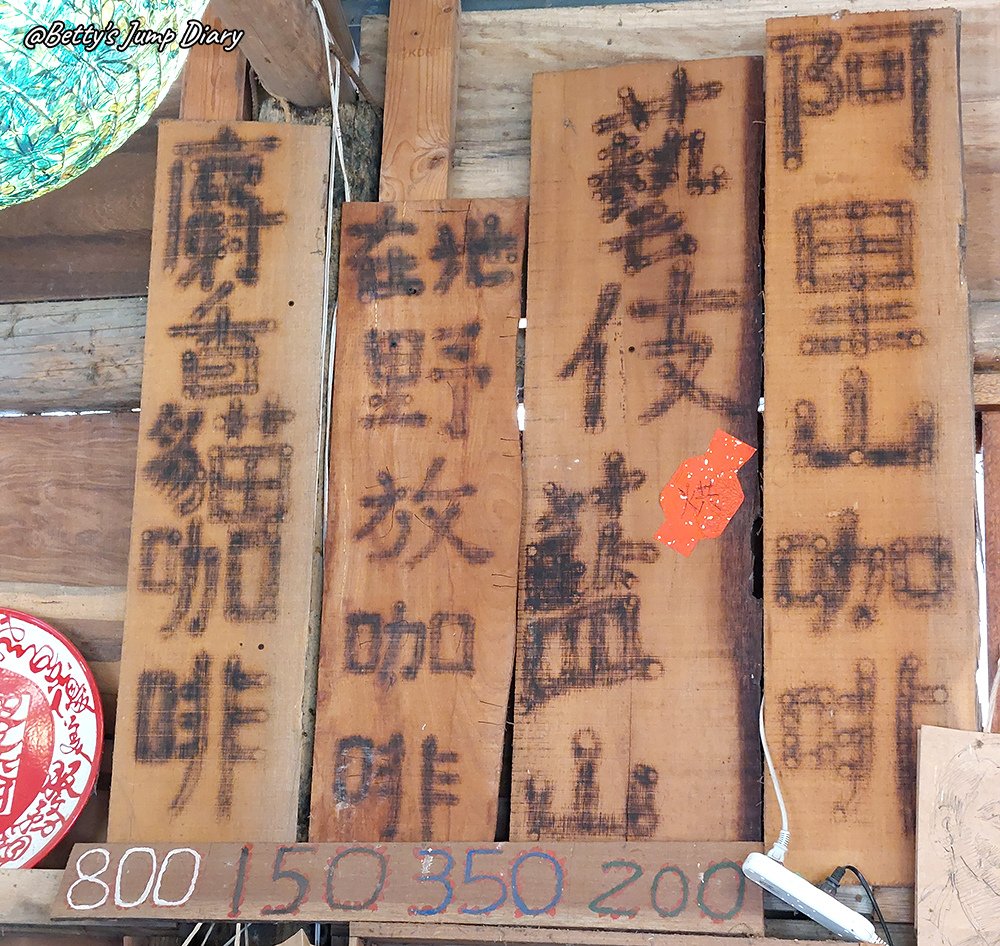 @Betty's Jump Diary
麝香貓咖啡
在地野放咖啡
藝伎藍山
阿里山咖啡
800 150 350 200